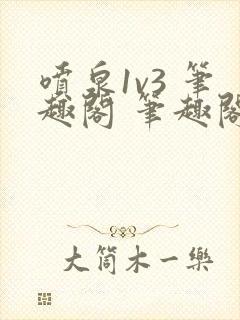 噴泉1v3 筆
趣閣 筆趣閣
大筒木一樂